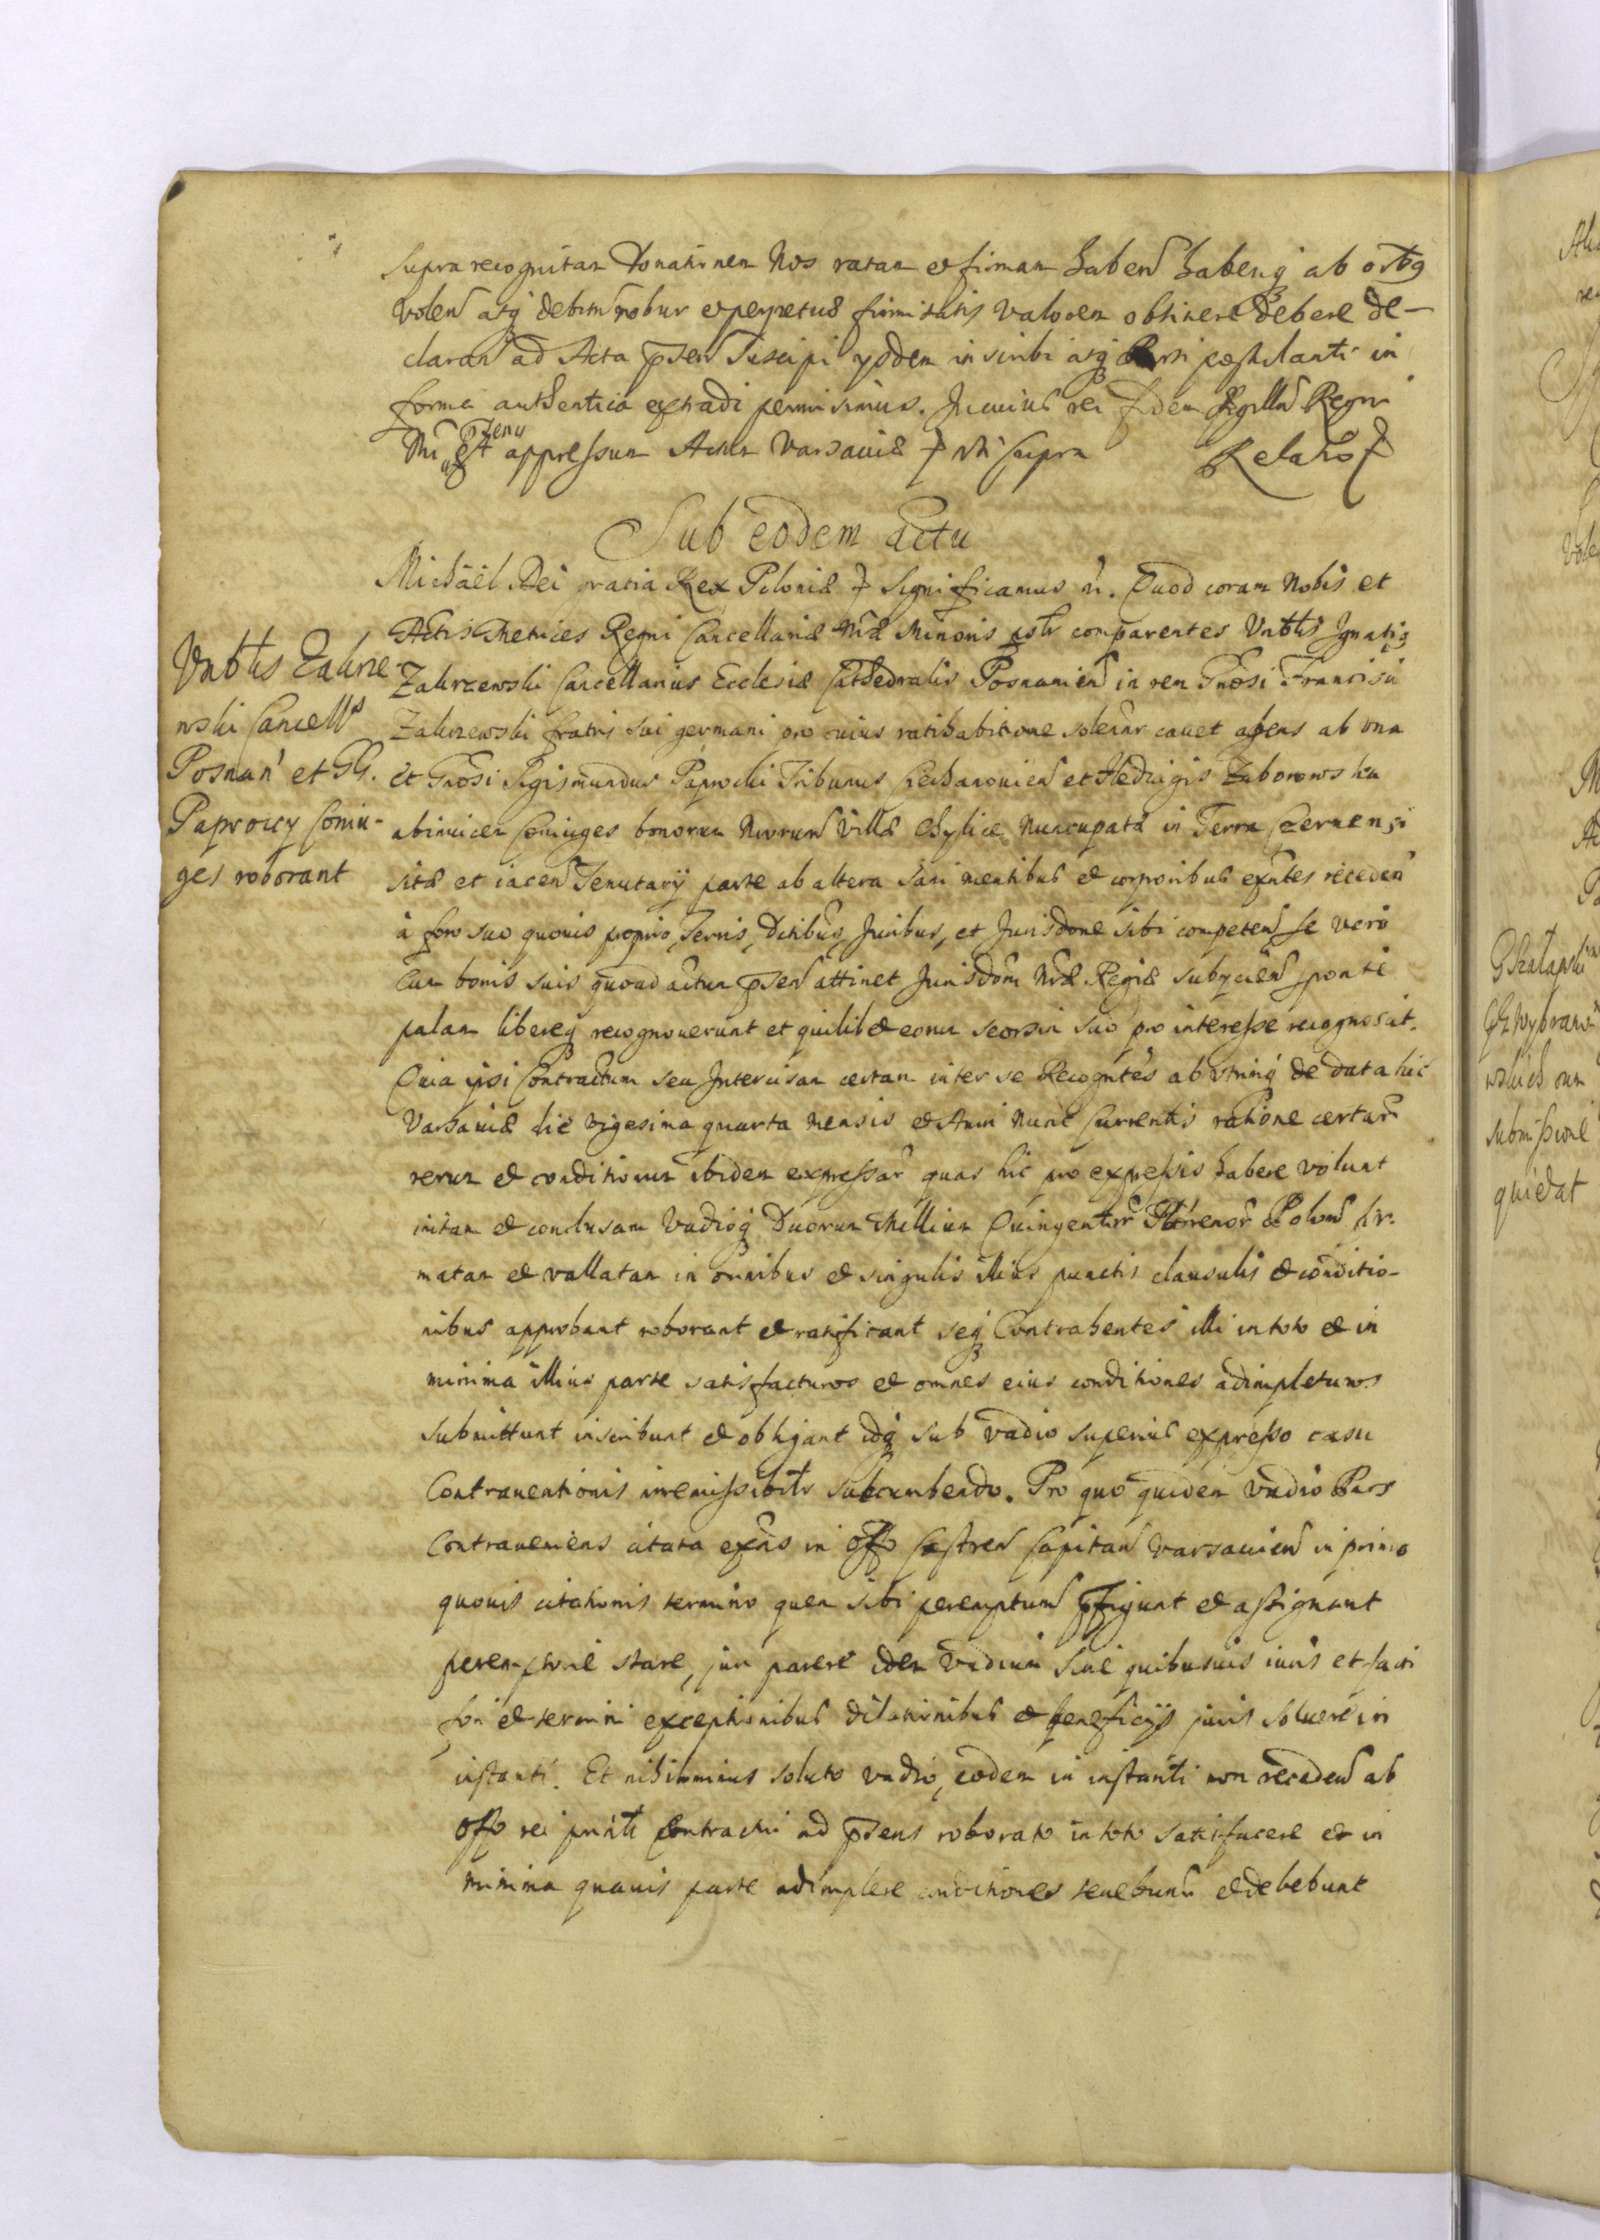 supra recognitam Donationem Nos ratam et firmam haben̄ haberiq ab o͠ib9
volen̄ atq debitū robur et perpetuæ firmitatis valorem obtinere debere de-
claran̄ ad Acta p̄sen̄ suscipi ysdem inscribi atq Parti postulanti in
forma authentica extradi permisimus. In cuius rei fidem Sigillū Regni
Nr̄i p̄senti est appressum Actum Varsaviæ ut supra Relatio
Sub eodem actu
Michaël Dei gratia Rex Poloniæ Significamus Quod coram Nobis et
Actis Metrices Regni Cancellariæ Nr̄æ Minoris p̄slr comparentes Vnbtlis Ignatig
Zakrzewski Cancellarius Ecclesiæ Cathedralis Posnanien̄ in rem Gnosi Francisci
Zakrzewski fratris sui germani pro cuius ratihabitione solenr cavet agens ab una
et Gnosi Sigismundus Paprocki Tribunus Ciechanovien̄ et Hedvigis Zaborowska
abinvicem Coniuges bonorum Nr̄orum Villæ Chylice Nuncupatæ in Terra Czernensi
sitæ et iacen̄ Tenutarÿ parte ab altera Sani mentibus et corporibus exn̄tes receden̄
à foro suo quovis proprio, Terris, Ditibus, Juribus, et Jurisdone sibi competen̄ se vero
Cum bonis suis quoad actum p̄sen̄ attinet Jurisdoni Nr̄æ Regiæ subycien̄ sponte
palam libereq recognoverunt et quilibet eorum seorsim suo pro interesse recognoscit.
Quia ipsi Contractum seu Intercisam certam inter se Recogntes ab utrinq de data hic
Varsaviæ die vigesima quarta mensis et Anni Nunc Currentis ratione certar̄
rerum et conditionum ibidem expressar̄ quas hic pro expressis habere volunt
initam et conclusam Vadioq Duorum Millium Quingentor̄ Florenor̄ Polon̄ fir-
matam et vallatam in omnibus et singulis illius punctis clausulis et conditio-
nibus approbant roborant et ratificant seq Contrahentes illi in toto et in
minima illius parte satisfacturos et omnes eius conditiones adimpleturos
submittunt inscribunt et obligant idq sub vadio superius expresso casu
Contraventionis irremissibtlr succumbendo. Pro quo quidem vadio Pars
Contraveniens citata exn̄s in Offo Castren̄ Capitan̄ Varsavien̄ in primo
quovis citationis termino quem sibi peremptum p̄figunt et assignant
peremptorie stare, juri parere idem vadium sine quibusvis iuris et facti
fori et termini exceptionibus dilationibus et beneficÿs juris solvere in
instanti. Et nihilominus soluto vadio, eodem in instanti non receden̄ ab
Offo rei p̄nti Contractui ad p̄sens roborato in toto satisfacere et in
minima quavis parte adimplere conditiones tenebuntr et debebunt
Vnbtlis Zakrze-
wski Cancells
Posnan̄ et GG.
Paproccy Coniu-
ges roborant
submissione
quietat